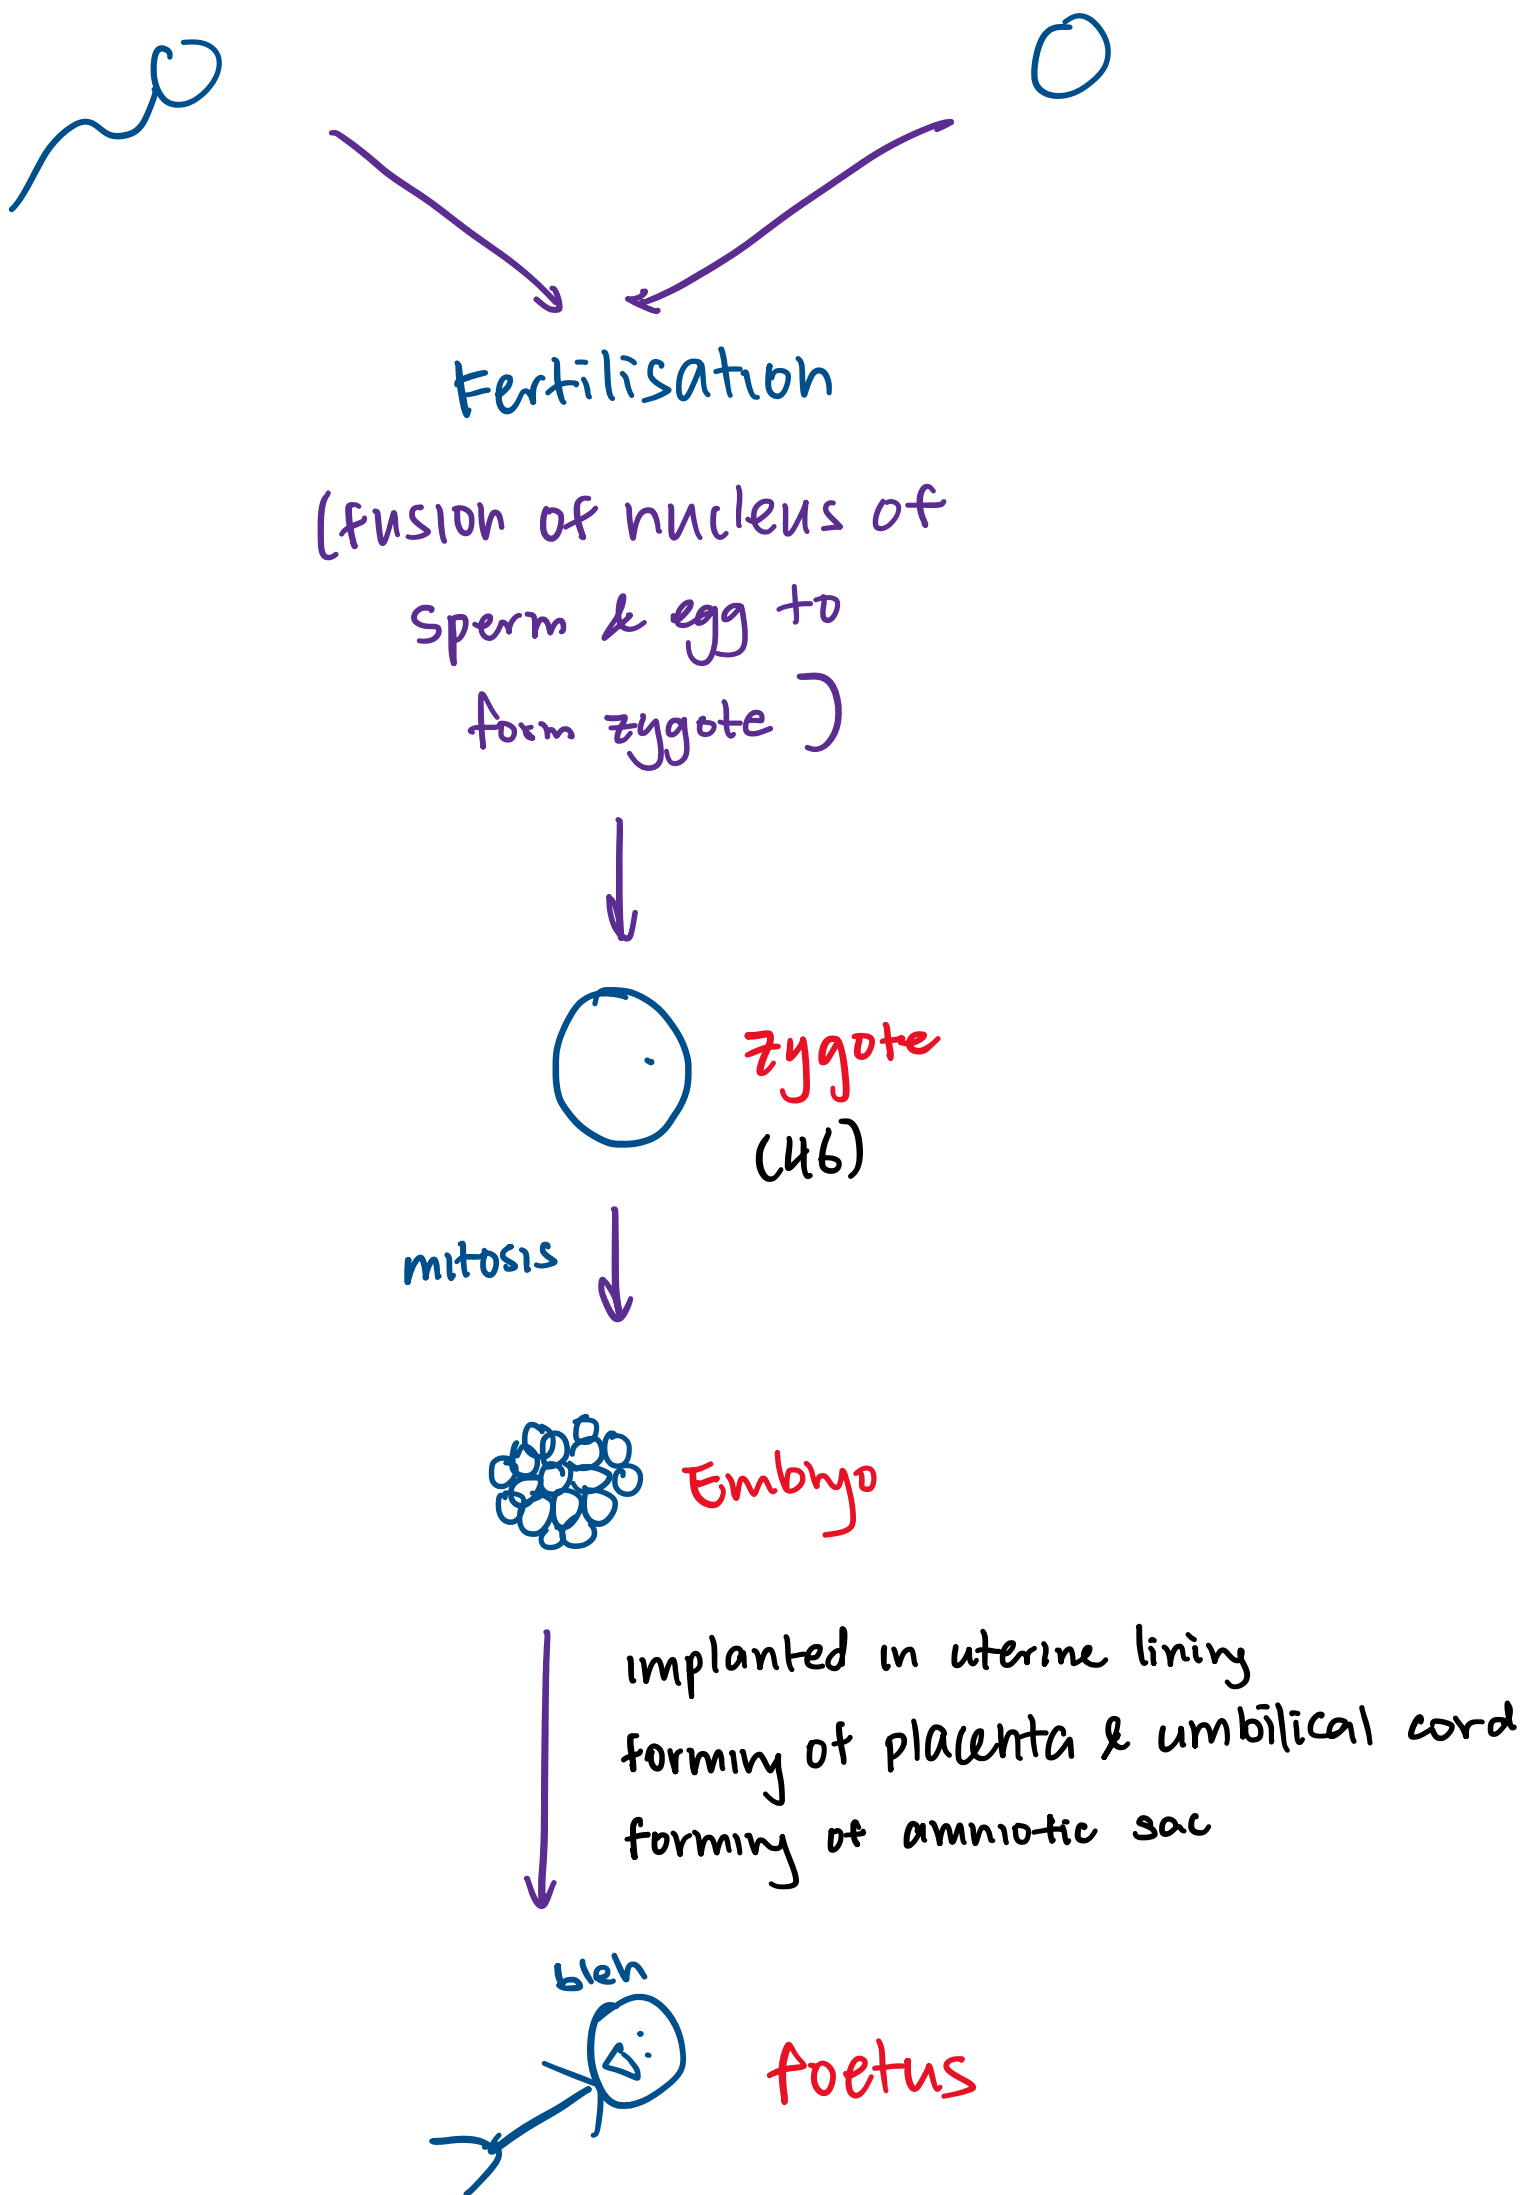 Fertilisation
(fusion of nucleus of
sperm & egg to
form zygote)
zygote
(46)
mitosis
Embryo
implanted in uterine lining
forming of placenta & umbilical cord
forming of amniotic sac
bleh
foetus